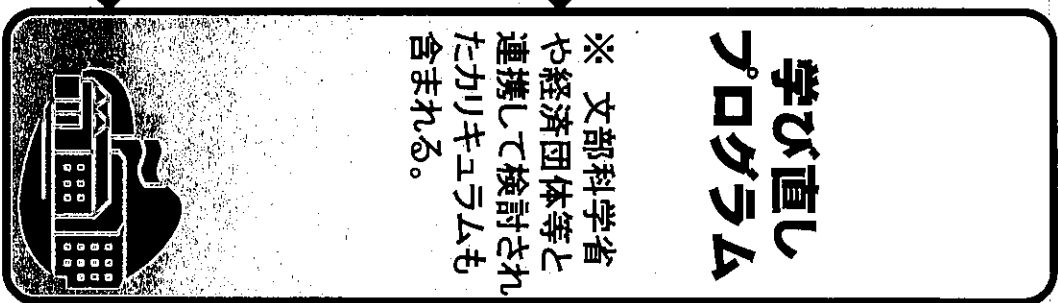 学び直し
プログラム
※ 文部科学省
や経済団体等と
連携して検討され
たカリキュラムも
含まれる。